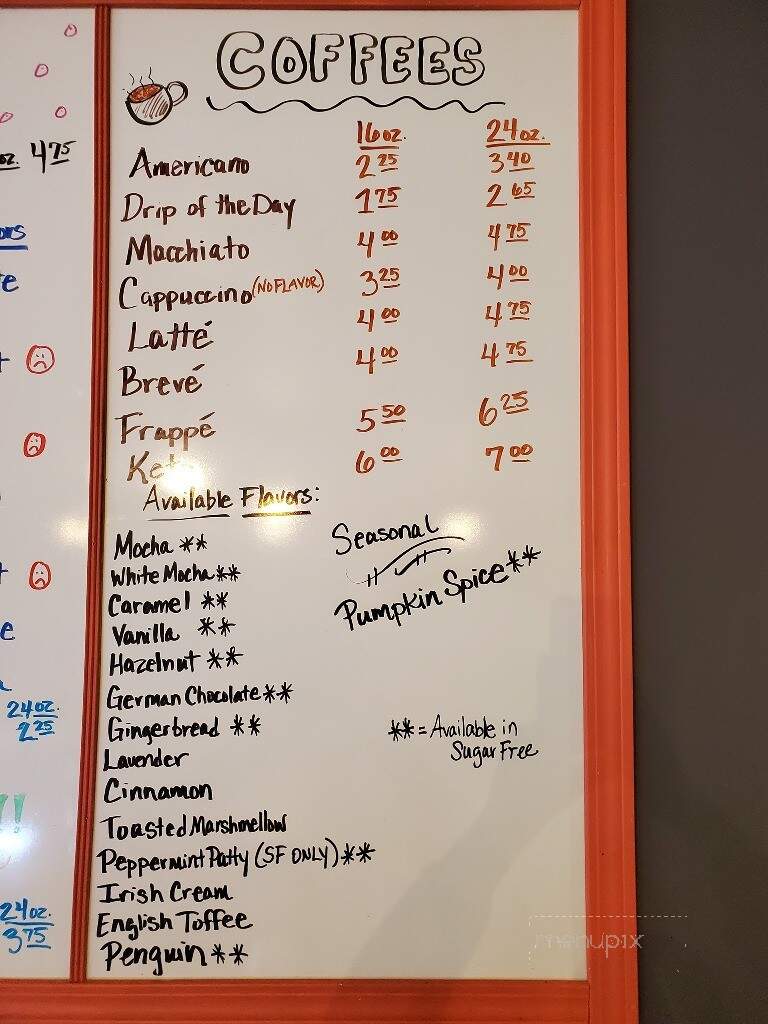 COFFEES
16oz. 24oz.
Americano 2.25 3.40
Drip of the Day 1.75 2.65
Macchiato 4.00 4.75
Cappuccino (NO FLAVOR) 3.25 4.00
Latté 4.00 4.75
Brevé 4.00 4.75
Frappé 5.50 6.25
Keto 6.00 7.00
Available Flavors:
Mocha **
White Mocha **
Caramel **
Vanilla **
Hazelnut **
German Chocolate **
Gingerbread **
Lavender
Cinnamon
Toasted Marshmellow
Peppermint Patty (SF ONLY) **
Irish Cream
English Toffee
Penguin **
Seasonal
Pumpkin Spice **
** = Available in
Sugar Free
oz. 4.75
24oz.
2.25
24oz.
3.75
menupix